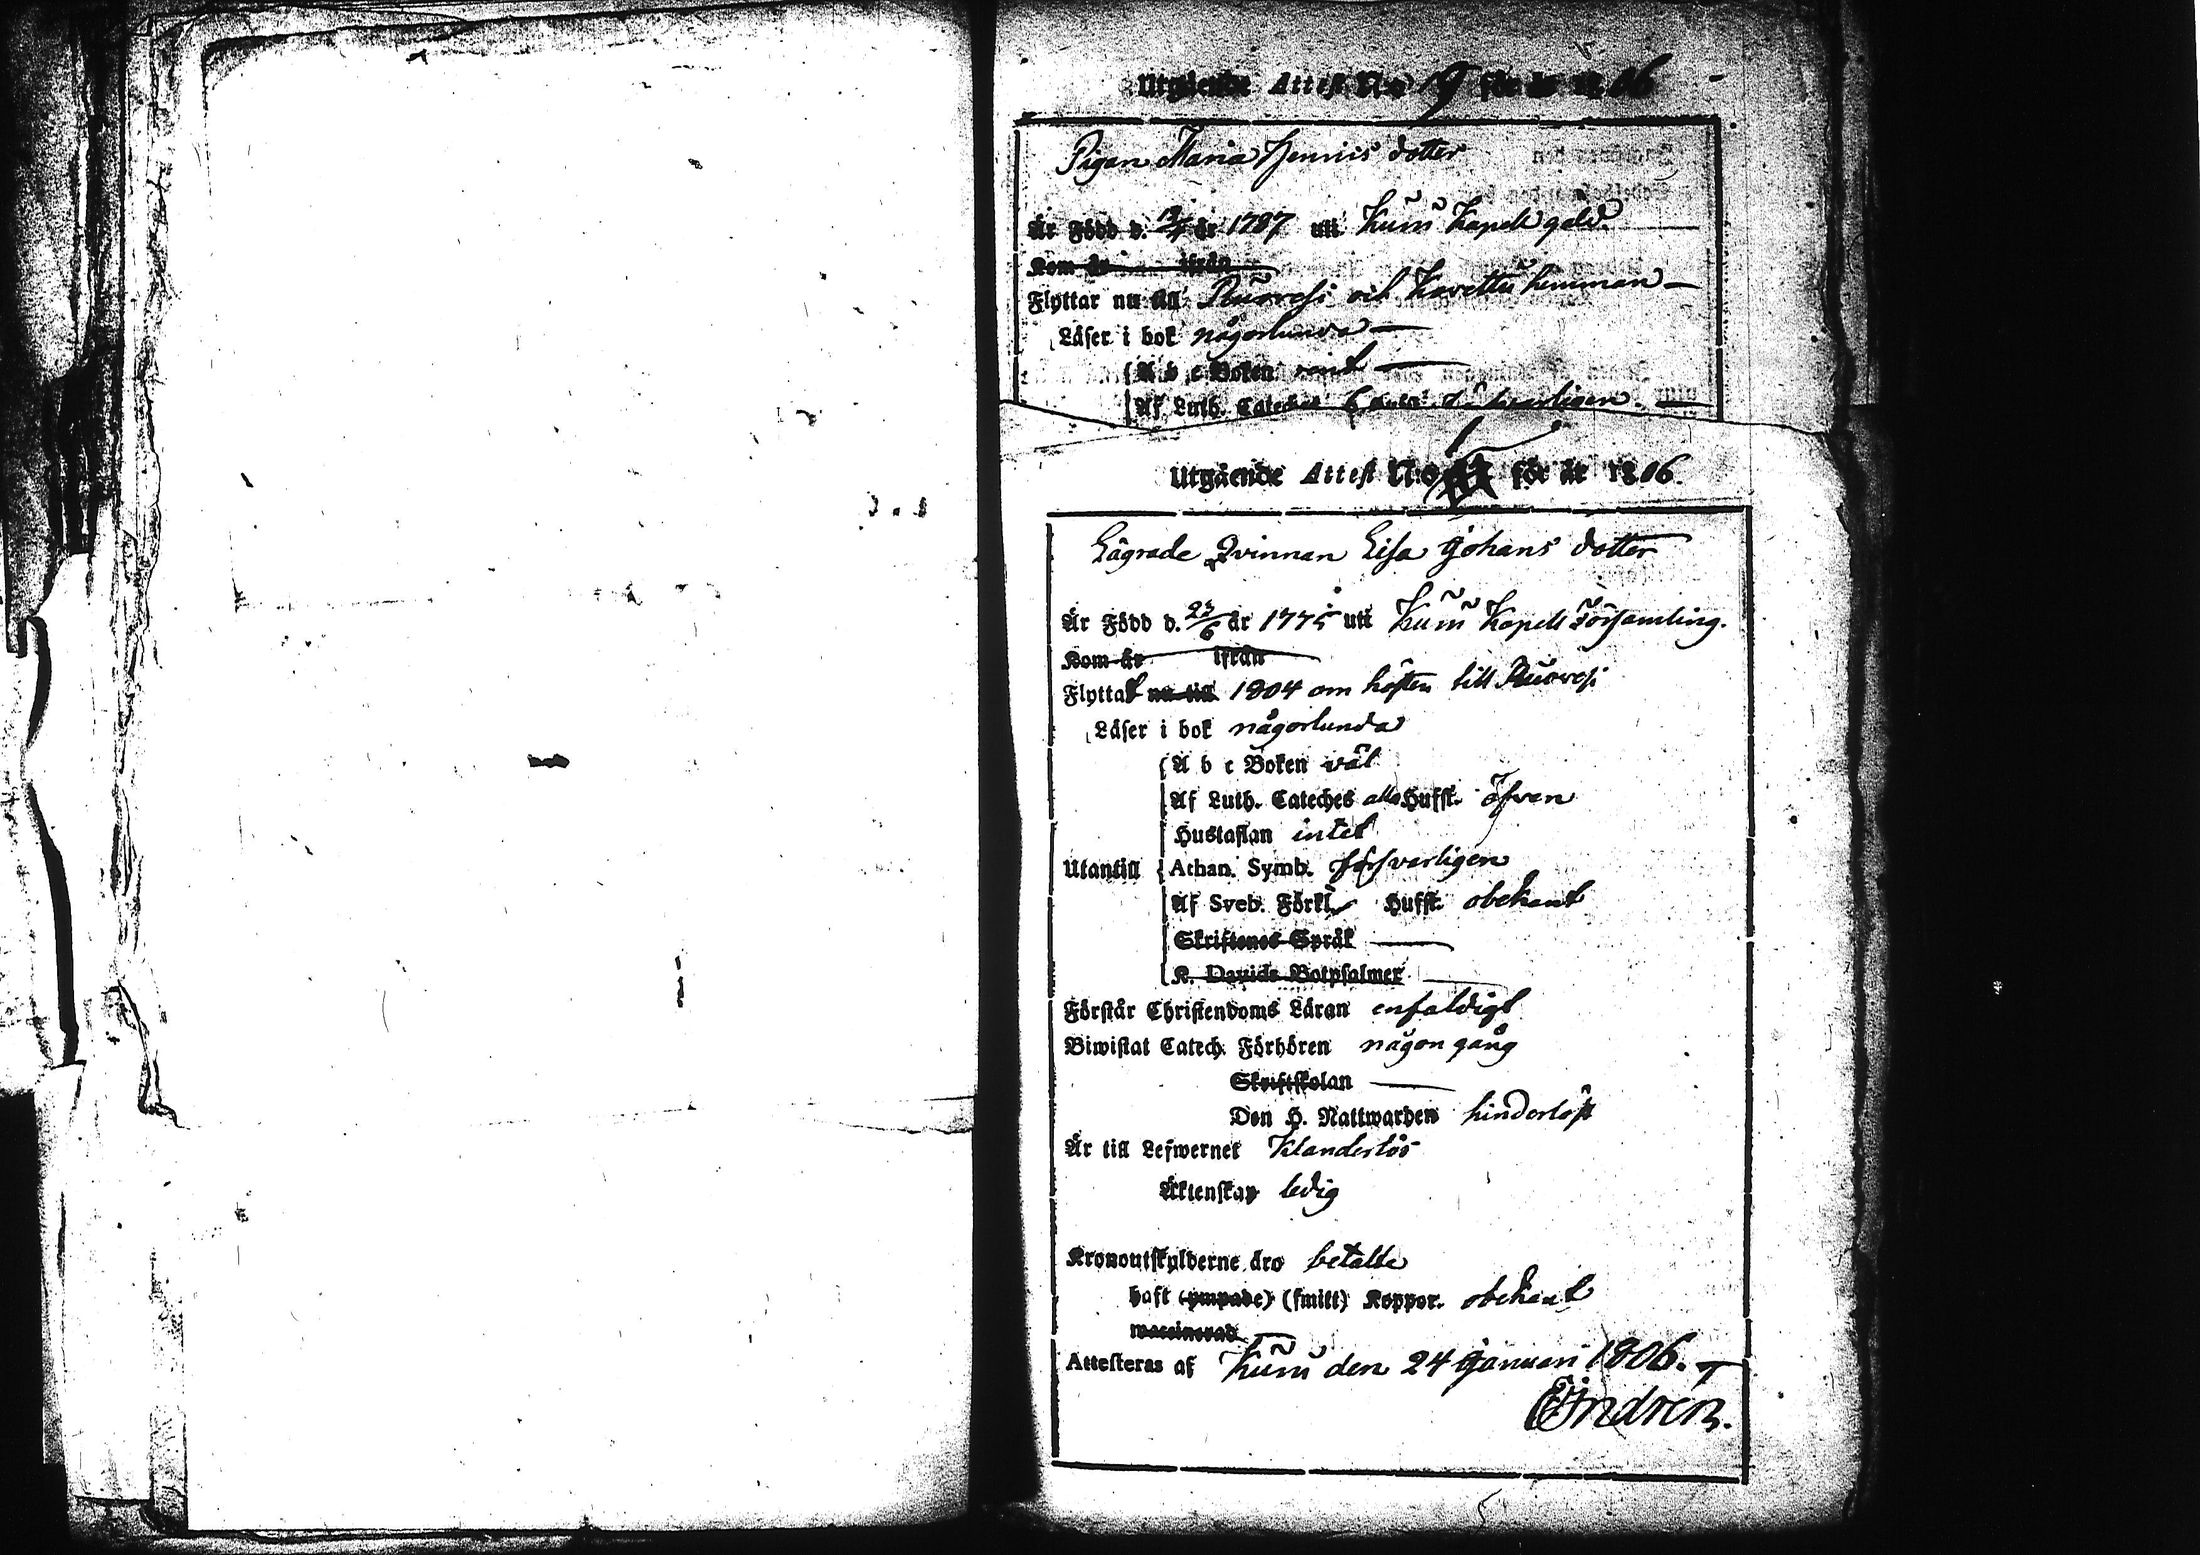 Utgående Attest N:o 19 för år 1806
Pigan Maria Henrics dotter
Är Född d. 12/4 år 1787 uti Kuru Kapell gäld.
Kom år ifrån
Flyttar nu till Ruovesi och Kovettu hemman
Läser i bok någorlunda
A b c Boken rent
Af Luth. Cateches 6 Hufst. försvarligen.
Utgående Attest N:o 1 för år 1806.
Lägrade Qvinnan Lisa Johans dotter
Är Född d. 23/6 år 1775 uti Kuru Kapells Församling.
Kom år ifrån
Flyttat nu till 1804 om hösten till Ruovesi
Läser i bok någorlunda
A b c Boken väl
Af Luth. Cateches alla Hufst. äfven
Hustaflan intet
Utantill Athan. Symb. försvarligen
Af Sveb. Förkl. Hufst. obekant
Skriftenes Språk
K. Davids Botpsalmer
Förstår Christendoms Läran enfaldigt
Biwistat Catech. Förhören någon gång
Skriftskolan
Den H. Nattwarden hinderlöst
Är till Lefwernet Klanderlös
Äktenskap ledig
Kronoutskylderne äro betalte
haft (ympade) (smitt) Koppor. obekant
waccinerad
Attesteras af Kuru den 24 Januari 1806.
E Indrén.